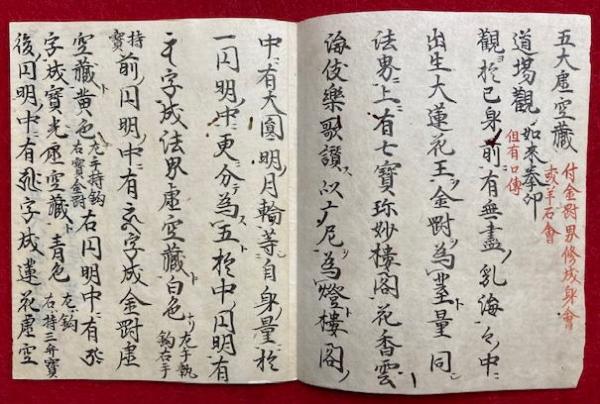 五大虚空藏
付金剛界修成身會
或羊石會
道場觀 如来拳印
但有口傳
觀於己身前有無盡乳海々中
出生大蓮花王金剛為莖量同
法界上有七寶珎妙樓閣花香雲
海伎樂歌讃以广尼為燈樓閣
中有大圓明月輪等自身量於
一円明中更分為五於中円明有
字成法界虚空藏白色 左手執
鈎右手
持寶
前円明中有字成金剛虚
空藏黄色 左手持鈎
右寶金剛
右円明中有
字成寶光虚空藏青色 左鈎
右持三弁寶
後円明中有字成蓮花虚空